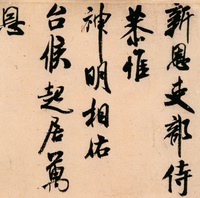 新恩吏部侍
恭惟
神明相佑
台候起居萬
恩